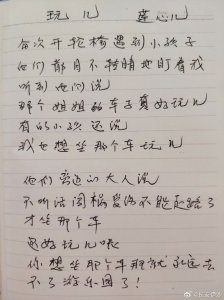 玩儿
莲心儿
每次开轮椅遇到小孩子
他们都目不转睛地盯着我
听到他们说
那个姐姐的车子真好玩儿
有的小孩还说
我也想坐那个车玩儿
他们旁边的大人说
不听话闯祸受伤不能走路了
才坐那个车
更好玩儿呢
你想坐那个车那就永远去
不了游乐园了!